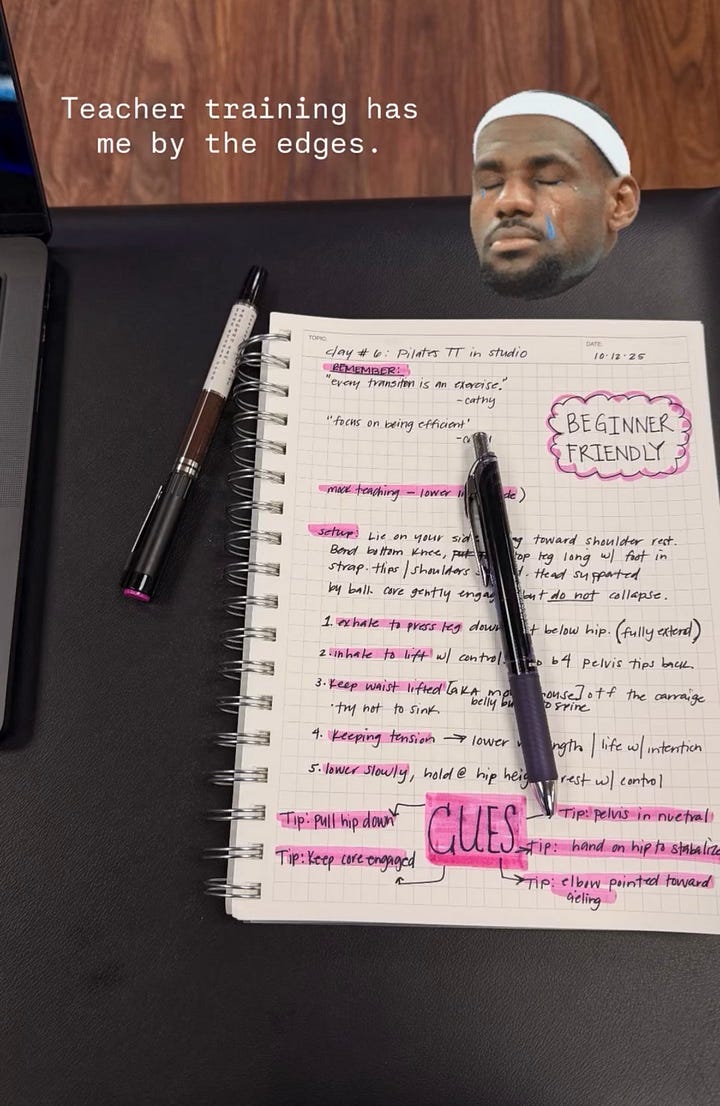 Teacher training has
me by the edges.
TOPIC:
DATE:
day # 6: Pilates TT in studio
10.12.25
REMEMBER:
"every transiton is an exercise."
-cathy
"focus on being efficient"
BEGINNER
FRIENDLY
mock teaching - lower
setup: Lie on your side toward shoulder rest.
Bend bottom knee, leg long w/ foot in
strap. Hips / shoulders Head supported
by ball. core gently but do not collapse.
1. exhale to press leg down below hip. (fully extend)
2. inhale to lift w/ control. b4 pelvis tips back.
3. Keep waist lifted [aka off the carraige
· try not to sink. belly
4. Keeping tension → lower | life w/ intention
5. lower slowly, hold @ hip rest w/ control
CUES
Tip: pull hip down
Tip: Keep core engaged
Tip: pelvis in nuetral
Tip: hand on hip to stabalize
Tip: elbow pointed toward
cieling